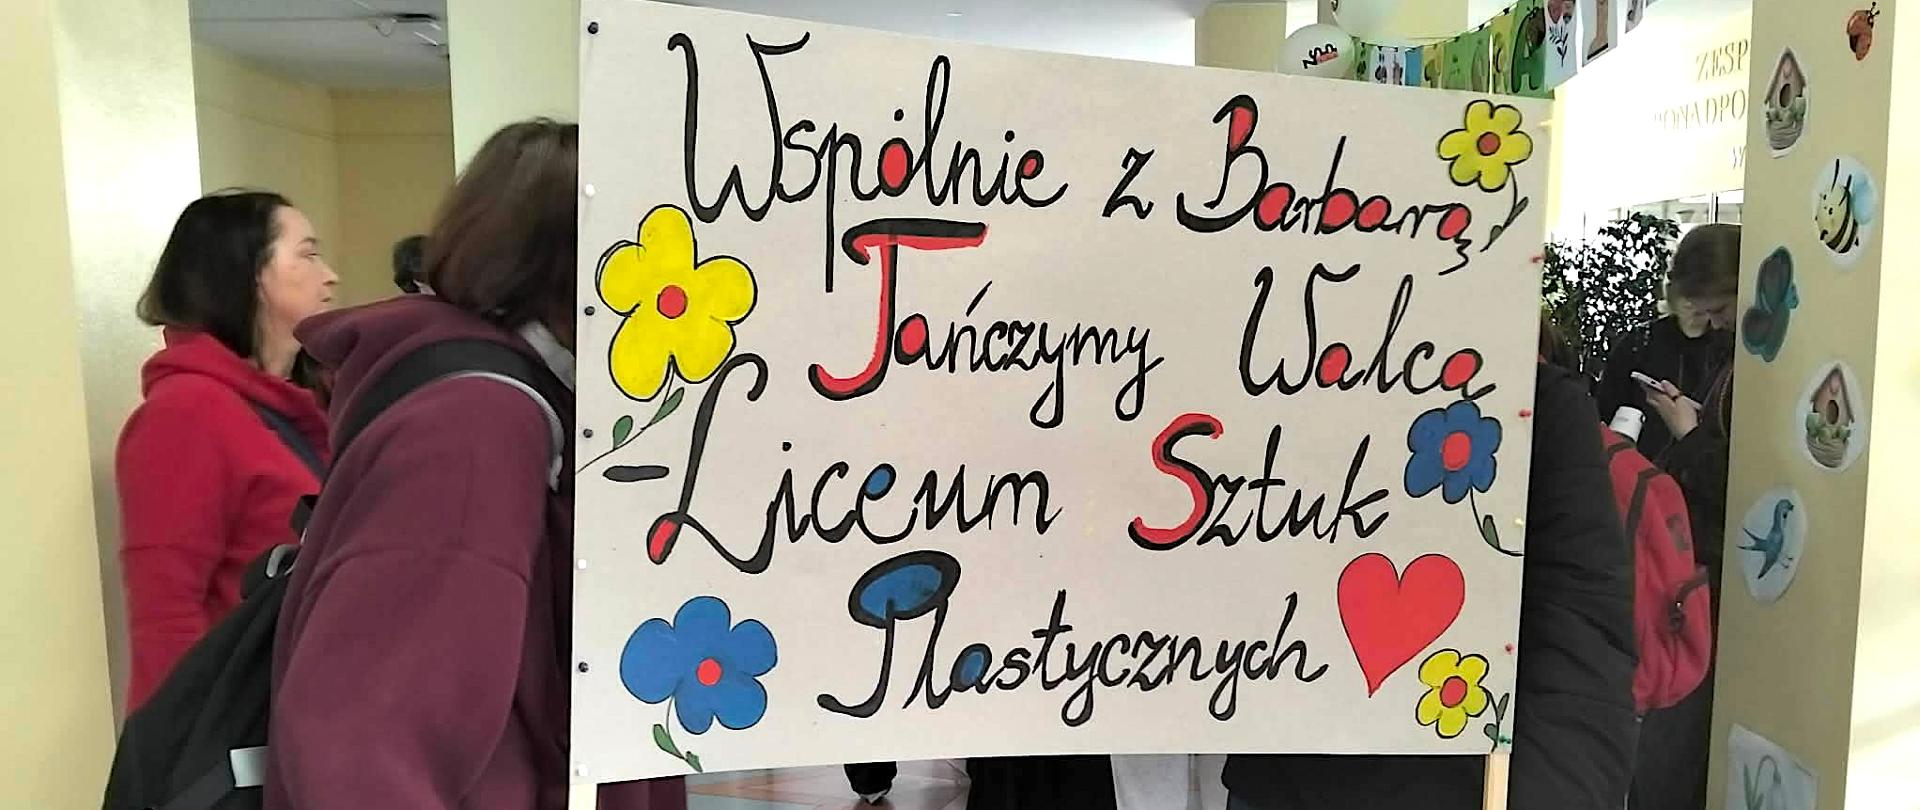 Wspólnie z Barbarą
Tańczymy Walca
-Liceum Sztuk
Plastycznych
ZESP
PONADPO